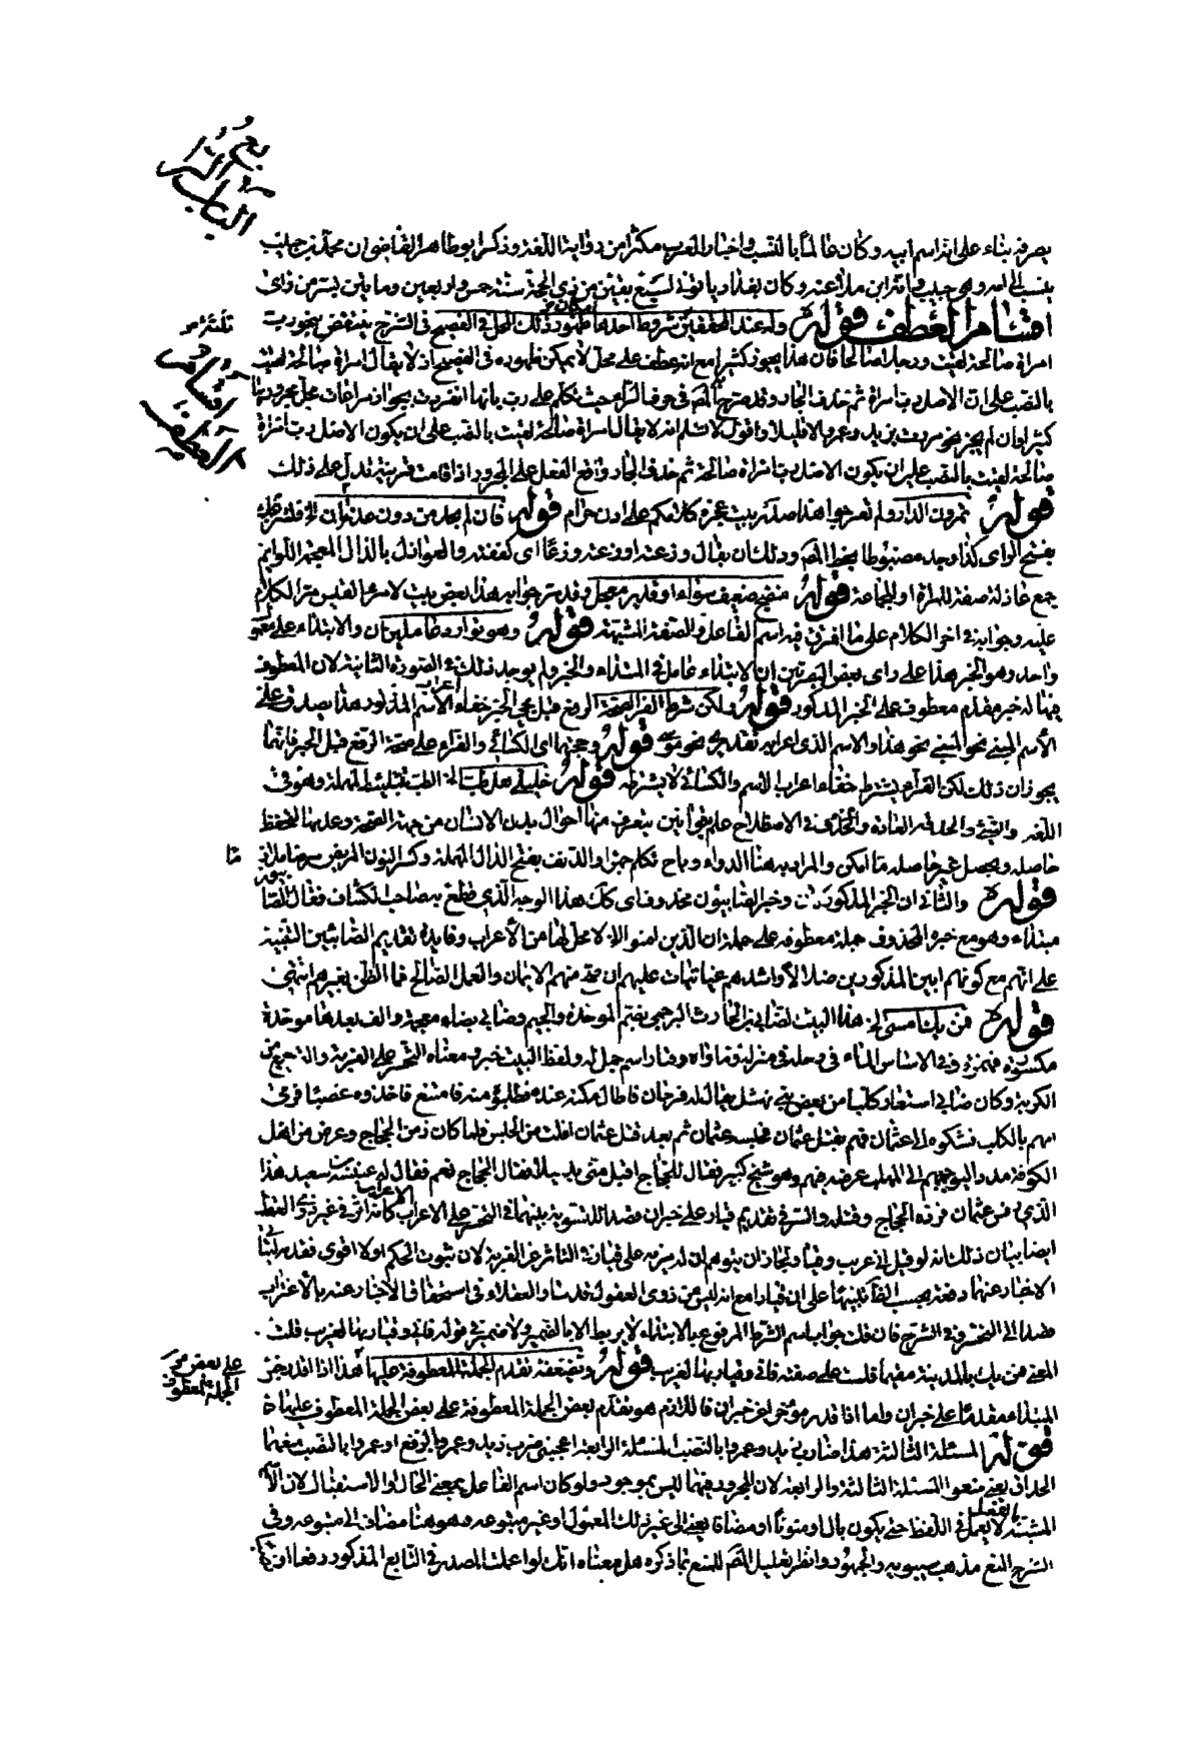 الباب الرابع
يصرفه بناء على انه اسم ابيه وكان عالما بالنسب واخبار العرب مكثرا من رواية اللغة وذكر ابو طاهر القاضي ان محمد بن حبيب
ينسب الى امه وهي حبيب وانه ابن ملاعنة وكان بغداديا توفي لسبع بقين من ذي الحجة سنة خمس واربعين ومايتين بسر من راى
اقسام العطف قوله وله عند المحققين شروط احدها امكان ظهور ذلك المحل في الفصيح في الشرح ينتقض بنحو رب
اقسام العطف
امراة صالحة لقيت ورجلا صالحا فان هذا يجوز كثيرا مع انه عطف على محل لا يمكن ظهوره في الفصيح اذ لا يقال امراة صالحة لقيت
بالنصب على ان الاصل رب امراة ثم حذف الجار وقد صرح المص في حرف الراء حيث تكلم على رب بانها انفردت بجواز مراعات محل مجرورها
كثيرا وان لم يجز نحو مررت بزيد وعمرا الا قليلا واقول لا نسلم انه لا يقال امراة صالحة لقيت بالنصب على ان يكون الاصل رب امراة
صالحة لقيت بالنصب على ان يكون الاصل رب امراة صالحة ثم حذف الجار واقع الفعل على المجرور اذا قامت قرينة تدل على ذلك
قوله تمرون الديار ولم تعوجوا هذا صدر بيت عجزه كلامكم على اذن حرام قوله فان لم تجد من دون عدنان الخ فلتزعك
بفتح الزاى كذا وجد مضبوطا بخط المص وذلك ان يقال وزعته اوزعه وزعا اى كففته والعواذل بالذال المعجمة اللوايم
جمع عاذلة صفة للمراة او الجماعة قوله منضج صفيف شواء او قدير معجل وقد مر جوابه هذا بعض بيت لامرئ القيس مر الكلام
عليه وجوابه في اخر الكلام على ما افترق فيه اسم الفاعل والصفة المشبهة قوله وهو توارد عاملين ان والابتداء على معمول
واحد وهو الخبر هذا على راى بعض البصريين ان الابتداء عامل في المبتداء والخبر ولم يوجد ذلك في الصورة الثانية لان المعطوف
فيها له خبر مقدم معطوف على الخبر المذكور قوله ولكن شرط الفراء لصحة الرفع قبل مجئ الخبر خفاء اعراب الاسم المذكور هذا يصدق على
الاسم المبني نحو المبني نحو هذا والاسم الذى اعرابه تقديرى نحو موسى قوله وحجتهما اى الكسائى والفراء على صحة الرفع قبل الخبر فانهما
يجوزان ذلك لكن الفراء يشترط خفاء اعراب الاسم والكسائى لا يشترطه قوله خليلي هل طب الخ الطب بتثليث المهملة وهو في
اللغة والشئ والحذق العادة والحذق وفي الاصطلاح علم بقوانين يتعرف منها احوال بدن الانسان من جهة الصحة وعدمها لتحفظ
حاصله وتحصل غير حاصله ما امكن والمراد به هنا الدواء وباح تكلم جهرا والدنف بفتح الدال المهملة وكسر النون المريض
قوله والثاني ان الخبر المذكور لان وخبر الصابئون محذوف اى كذلك هذا الوجه الذي قطع به صاحب الكشاف فقال الصابئون
مبتداء وهو مع خبره المحذوف جملة معطوفة على جملة ان الذين امنوا الا لا محل لها من الاعراب وفايدة تقديم الصابئين التنبيه
على انهم مع كونهم ابين المذكورين ضلالا واشدهم غيا يتاب عليهم ان صح منهم الايمان والعمل الصالح فما الظن بغيرهم انتهى
قوله فمن يك امسى الخ هذا البيت لضابئ بن الحارث البرجمي بضم الموحدة والجيم وضابى بضاد معجمة والف بعدها موحدة
مكسورة فهمزة وفي الاساس الماء في رحله في منزله وماواه وقيار اسم جمل له ولفظ البيت خبر ومعناه التحسر على الغربة والتوجع من
الكربة وكان ضابى استعار كلبا من بعض بني نهشل يقال له قرحان فاطال مكثه عنده فطلبوه منه فامتنع فاخذوه غصبا فرمى
امهم بالكلب فشكوه الى عثمان فهم بقتل عثمان فحبسه عثمان ثم بعد قتل عثمان افلت من الحبس فلما كان زمن الحجاج وعرض من اهل
الكوفة مددا ليوجههم الى المهلب عرضه فيهم وهو شيخ كبير فقال للحجاج اقبل مني بديلا فقال الحجاج نعم فقال له عنبسة بن سعيد هذا
الذي من عثمان فرده الحجاج وقتله والسر في تقديم قيار على خبر ان قصد التسوية بينهما في التحسر على الاغتراب كانه اثر في غير ذوي النطق
ايضا بيان ذلك انه لو قيل اني غريب وقيار لجاز ان يتوهم ان له مزية على قيار في التاثر عن الغربة لان ثبوت الحكم اولا اقوى فقدم ليتاتى
الاخبار عنهما دفعة بحسب الظاهر تنبيها على ان قيارا مع انه ليس من ذوى العقول قد ساوى العقلاء في استحقاق الاخبار عنه بالاغتراب
قصدا الى التحسر وفي الشرح فان قلت جواب اسم الشرط المرفوع بالابتداء لا يربط الا بالضمير ولا ضمير في قوله فاني وقيار بها لغريب قلت
المعنى من يك بالمدينة مقيما فلست على صفته فاني وقيار بها لغريب قوله وتضعفه تقدم الجملة المعطوفة عليها هذا اذا قدر خبر
على بعض الجملة المعطوف
المبتداء مقدما على خبر ان واما اذا قدر مؤخرا عن خبر ان فاللازم هو تقدم بعض الجملة المعطوفة على بعض الجملة المعطوف عليها
قوله المسئلة الثالثة هذا ضارب زيد وعمرا بالنصب المسئلة الرابعة اعجبني ضرب زيد وعمرو بالرفع او عمرا بالنصب منعهما
الحذاق يعني منعوا المسئلة الثالثة والرابعة لان المجرور فيهما ليس بموجود ولو كان اسم الفاعل بمعنى الحال او الاستقبال لان الاسم
المشبه بالفعل لا يعمل في اللفظ حتى يكون بال او منونا او مضافا يعني الى غير ذلك المعمول او غير متبوعه وهو هنا مضاف الى متبوعه وفي
الشرح المنع مذهب سيبويه والجمهور وانظر تعليل المص للمنع بما ذكره هل معناه انك لو اعملت المصدر في التابع المذكور رفعا او نصبا